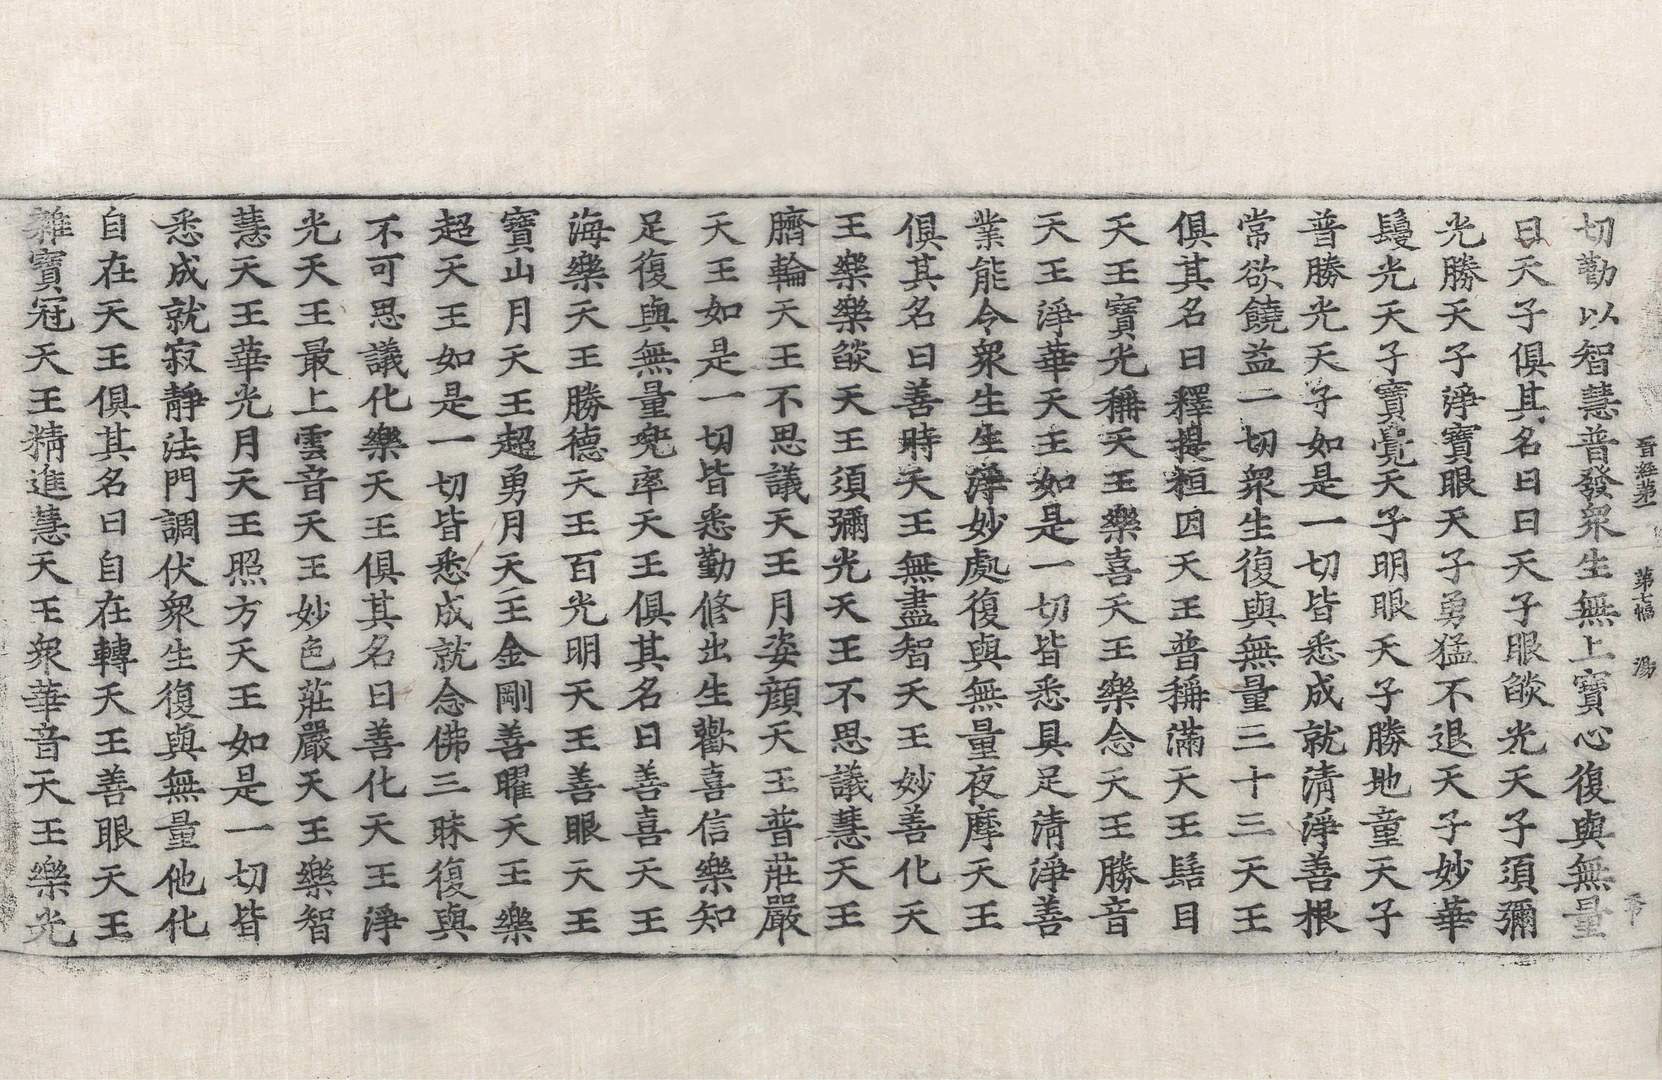 晉經第一 第七幅 湯
切勸以智慧普發衆生無上寶心復與無量
日天子俱其名曰日天子眼𦦨光天子須彌
光勝天子淨寶眼天子勇猛不退天子妙華
鬘光天子寶覺天子明眼天子勝地童天子
普勝光天子如是一切皆悉成就清淨善根
常欲饒益一切衆生復與無量三十三天王
俱其名曰釋提桓因天王普稱滿天王髻目
天王寶光稱天王樂喜天王樂念天王勝音
天王淨華天王如是一切皆悉具足清淨善
業能令衆生生淨妙處復與無量夜摩天王
俱其名曰善時天王無盡智天王妙善化天
王樂樂𦦨天王須彌光天王不思議慧天王
臍輪天王不思議天王月姿顔天王普莊嚴
天王如是一切皆悉勤修出生歡喜信樂知
足復與無量兜率天王俱其名曰善喜天王
海樂天王勝德天王百光明天王善眼天王
寶山月天王超勇月天王金剛善曜天王樂
超天王如是一切皆悉成就念佛三昧復與
不可思議化樂天王俱其名曰善化天王淨
光天王最上雲音天王妙色莊嚴天王樂智
慧天王華光月天王照方天王如是一切皆
悉成就寂靜法門調伏衆生復與無量他化
自在天王俱其名曰自在轉天王善眼天王
雜寶冠天王精進慧天王衆華音天王樂光